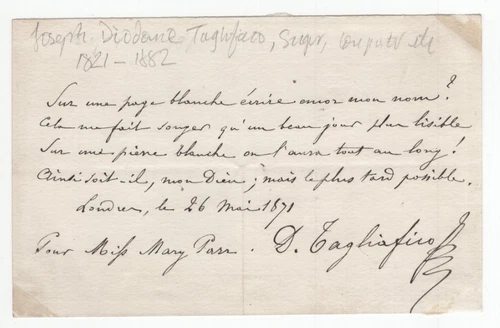 Joseph Diodore Tagliafico, Singer,
1821 – 1882
Sur une page blanche écrire encor mon nom?
Cela me fait songer qu'un beau jour plus lisible
Sur une pierre blanche on l'aura tout au long!
Ainsi soit-il, mon Dieu; mais le plus tard possible.
Londres, le 26 Mai 1871
Pour Miss Mary Parr. D. Tagliafico